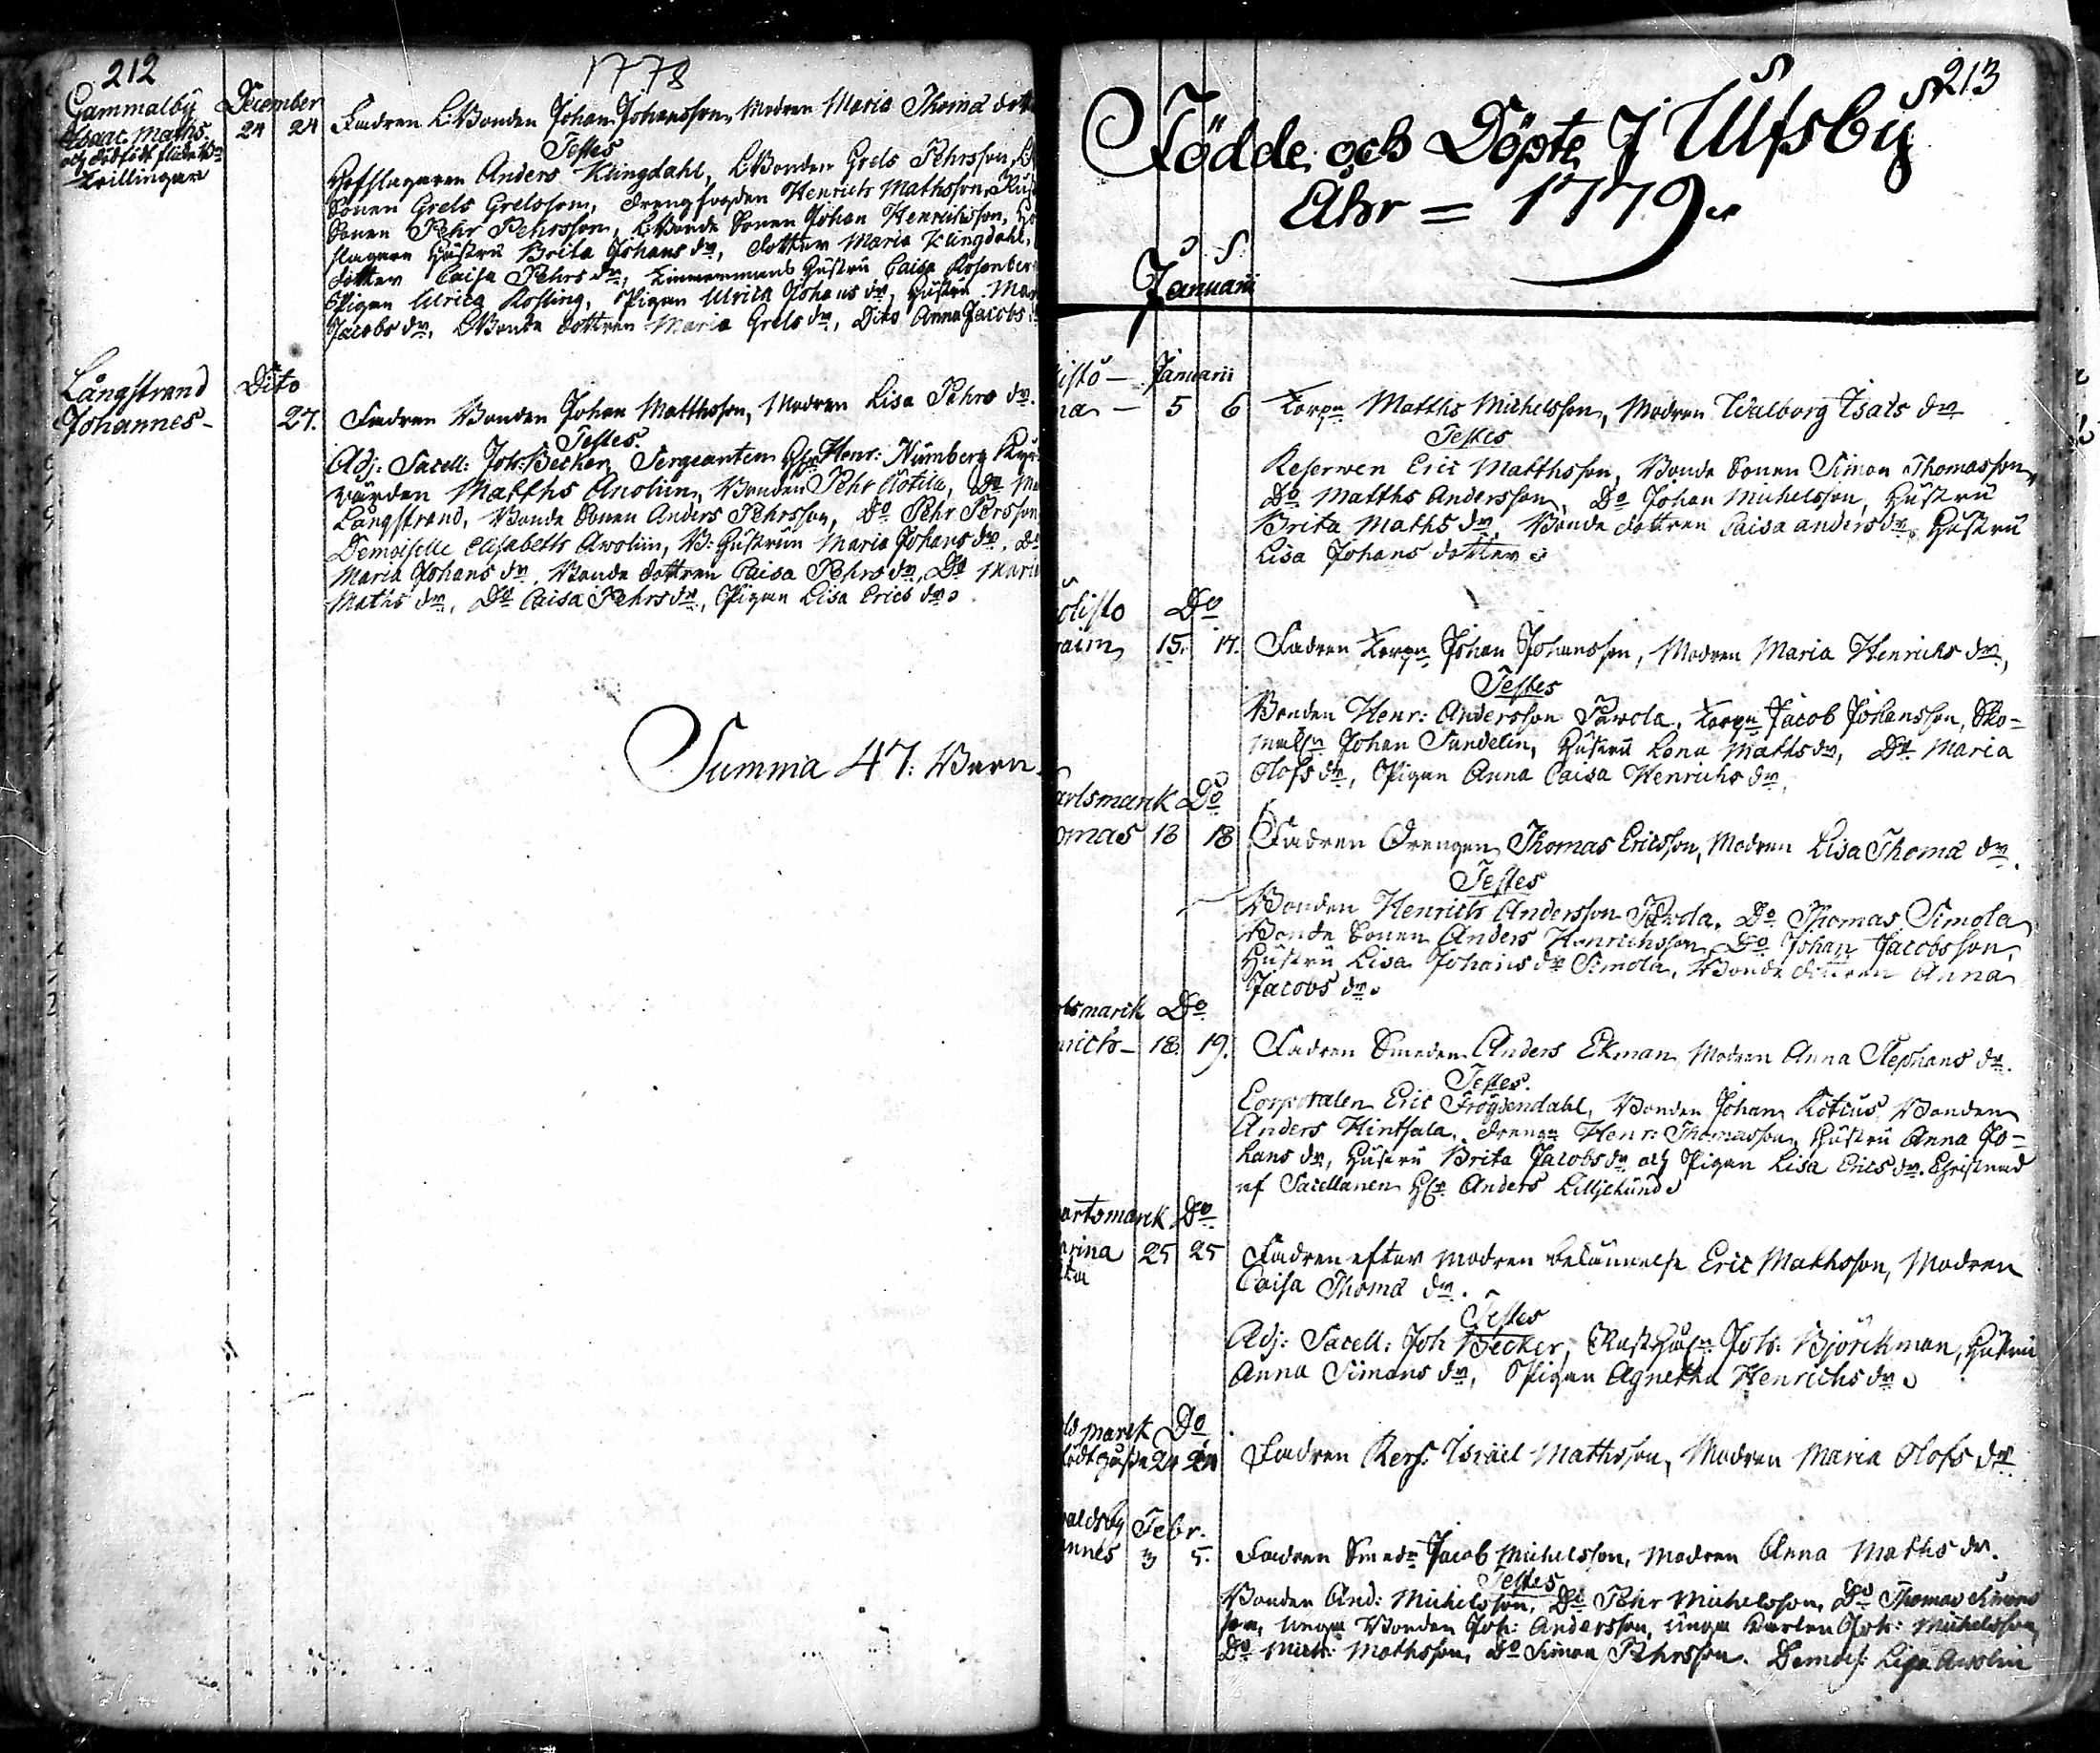 212
1778
Gammalby December
Isaac. Maths. 24 24 Fadren L:Bonden Johan Johansson, Modren Maria Thomæ dott
och dödfödt flicke Bn
Trillingar
Testes
Hofslagaren Anders Klingdahl, LBonden Grels Pehrsson,
Sonen Grels Grelsson, drengfogden Henrich Mathsson,
Sonen Pehr Pehrsson, LBonde Sonen Johan Henrichsson,
slagare Hustru Brita Johans dr, dotter Maria Klingdahl,
dotter Caisa Pehrs dr, Timmermans Hustru Caisa Rosenber
Pigan Ulrica Rosling, Pigan Ulrica Johans dr, Hustru Mar
Jacobs dr, LBonde dottren Maria Grels dr, Dito Anna Jacobs
Långstrand Dito
Johannes- 27. Fadren Bonden Johan Matthsson, Modren Lisa Pehrs dr.
Testes.
Adj: Sacell: Joh: Becker, Sergeanten Hr Henr: Nürnberg
värden Matths Anolin, Bonden Pehr Clotila, Do
Långstrand, Bonde Sonen Anders Pehrsson, Do Pehr Persson
Demoiselle Elisabeth Awolin, B: Hustrun Maria Johans dr, Do
Maria Johans dr, Bonde dottren Caisa Pehrs dr, Do Mari
Maths dr, Do Caisa Pehrs dr, Pigan Lisa Erics dr.
Summa 47: Barn.
213
Födde och Döpte J Ulfsby
Åhr = 1779.
Januarii
isto - Januarii
na - 5 6 Torpn Matths Michelsson, Modren Walborg Isacs dr
Testes
Reserven Eric Matthsson, Bonde Sonen Simon Thomasson,
Do Matths Andersson, Do Johan Michelsson, Hustru
Brita Maths dr, Bonde dottren Caisa anders dr, Hustru
Lisa Johans dotter.
olisto Do
raim, 15. 17. Fadren Torpn Johan Johansson, Modren Maria Henrichs dr,
Testes
Bonden Henr: Andersson Pawola, Torpn Jacob Johansson, Sko-
makn Johan Sundelin, Hustru Lena Matths dr, Do Maria
Olofs dr, Pigan Anna Caisa Henrichs dr,
arlsmark Do
omas 18 18 Fadren Drengen Thomas Ericsson, Modren Lisa Thomæ dr.
Testes
Bonden Henrich Andersson Pawola, Do Thomas Simola
Bonde Sonen Anders Henrichsson, Do Johan Jacobsson,
Hustru Lisa Johans dr Simola, Bonde dottren Anna
Jacobs dr.
lsmark Do
nrich- 18. 19. Fadren Smeden Anders Ekman Modren Anna Stephans dr.
Testes.
Corporalen Eric Fröijdendahl, Bonden Johan Kotius, Bonden
Anders Hintsala, drengn Henr: Thomasson, Hustru Anna Jo-
hans dr, Hustru Brita Jacobs dr och Pigan Lisa Erics dr. Christnad
af Sacellanen Hr Anders Lilljelund.
arlsmark Do
arina 25 25 Fadren efter Modren bekännelse Eric Mathsson, Modren
Caisa Thomæ dr.
Testes
Adj: Sacell: Joh Becker, Joh: Björckman, Hustru
Anna Simons dr, Pigan Agnetha Henrichs dr.
ls marck Do
24 24 Fadren Res: Israel Mathsson, Modren Maria Olofs dr
valdsby Febr.
annes 3 5. Fadren Smedn Jacob Michelsson, Modren Anna Maths dr.
Testes
Bonden And: Michelsson, Do Pehr Michelsson, Do Thomas Simons
son, unga Bonden Joh: Andersson, unga Karlen Joh: Michelsson,
Do Mich: Mathsson, Do Simon Pehrsson. Demois: Lisa Awolin